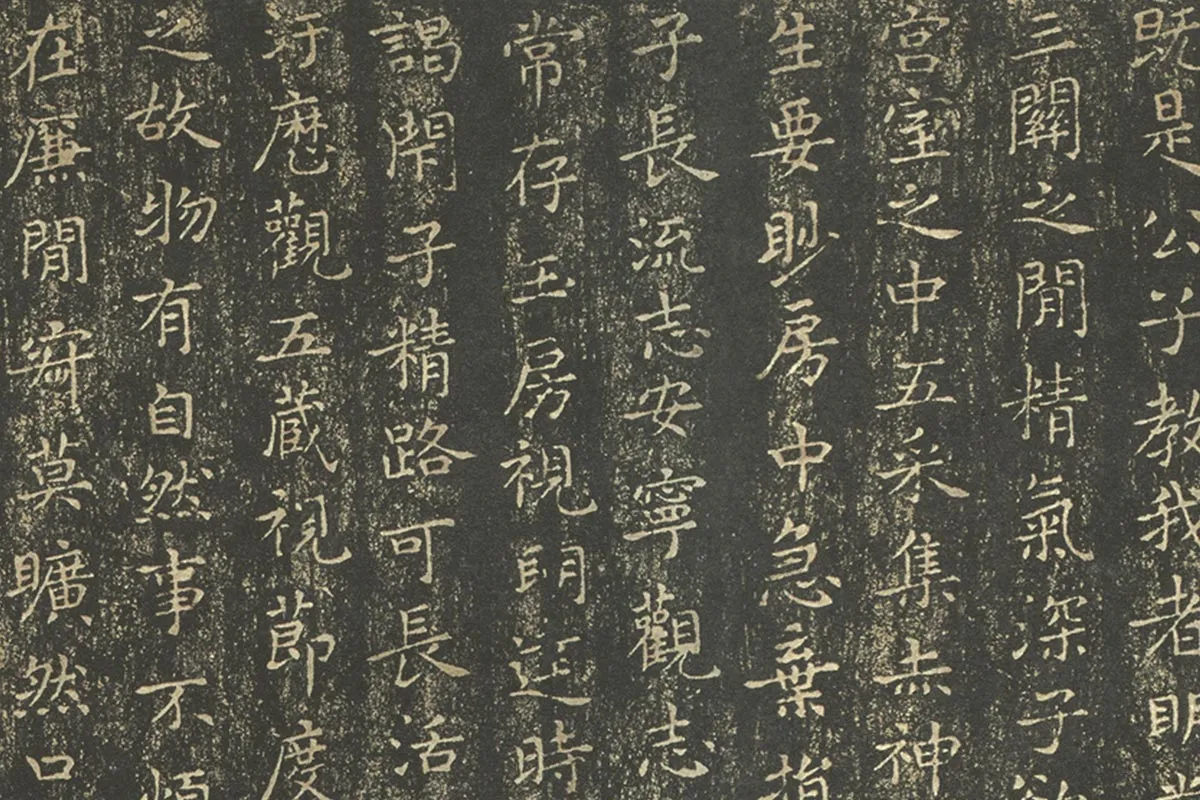 既是公子教我者明
三關之閒精氣深子欲
宮室之中五采集赤神
生要眇房中急棄捐
子長流志安寧觀志
常存玉房視明達時
謁閑子精路可長活
歷觀五藏視節度
之故物有自然事不煩
在廉閒寂莫曠然口